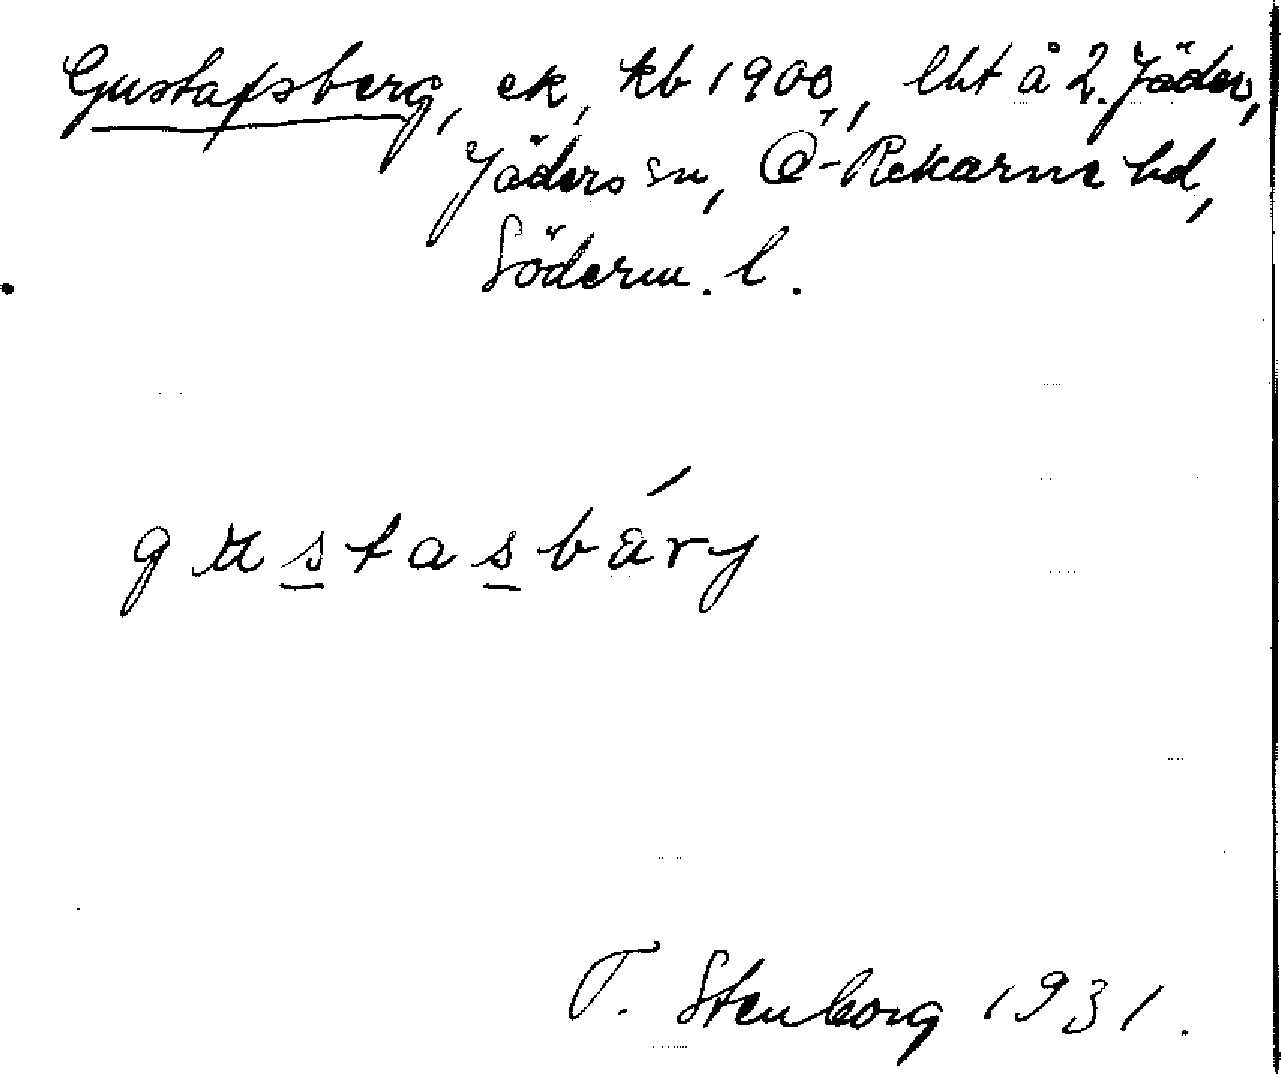 Gustafsberg, ek, kb 1900, lht å 2. Jäder,
Jäders sn, Ö-Rekarne hd,
Söderm. l.
gustasbárj
T. Stenborg 1931.